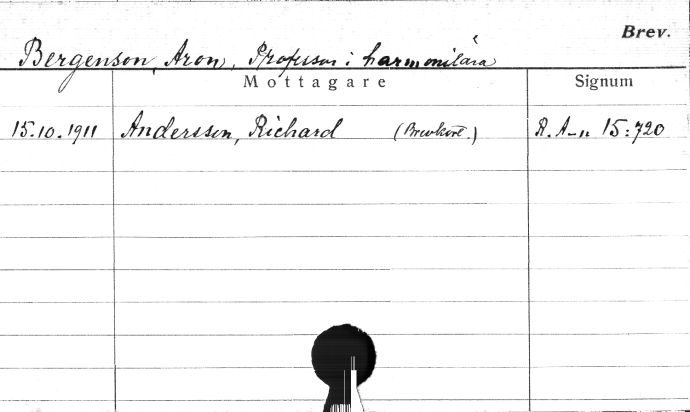 Brev.
Bergenson, Aron, Professor i harmonilära
Mottagare Signum
15.10.1911 Andersson, Richard (Brevkort.) R. A-n 15:720